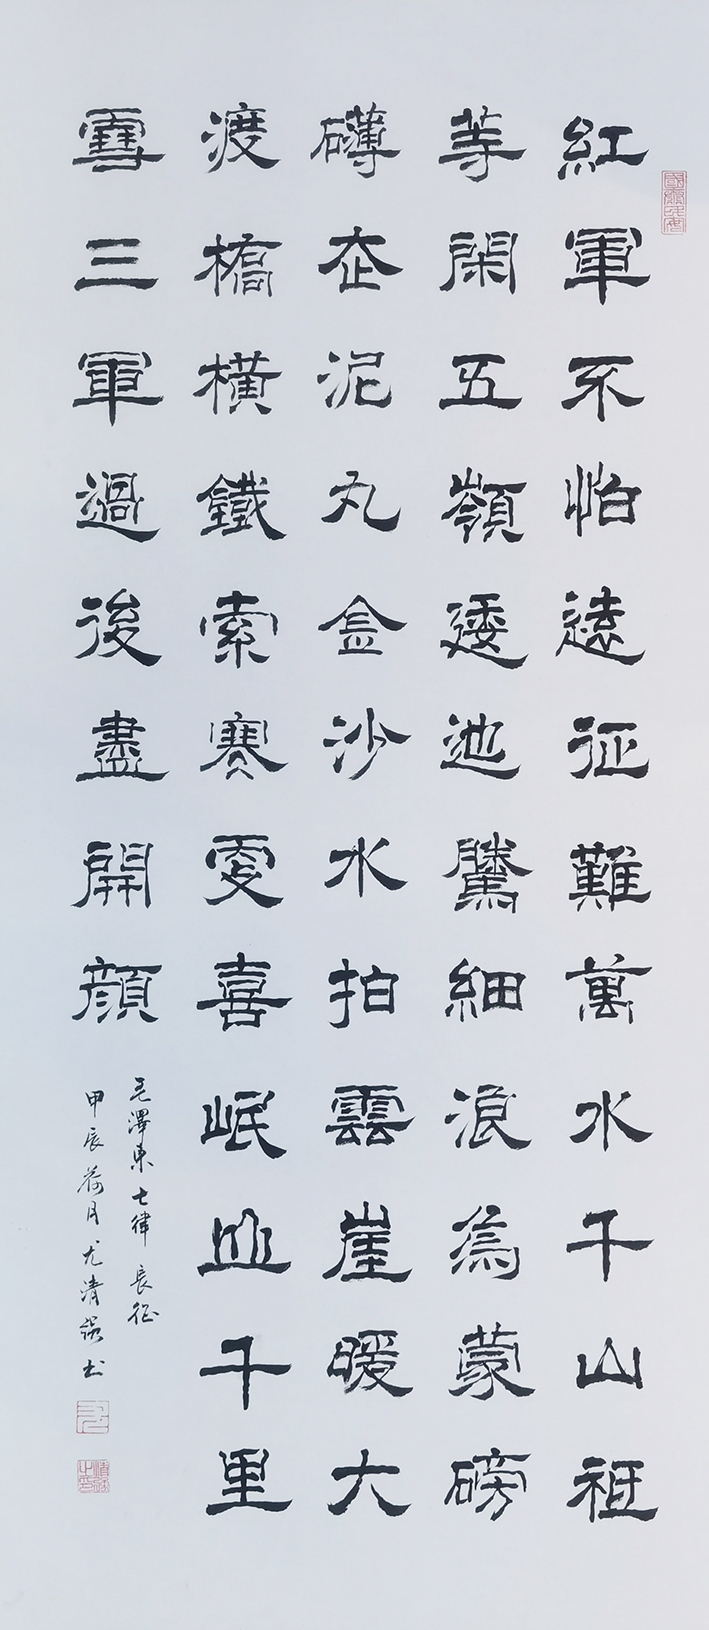 紅軍不怕遠征難萬水千山祗
等閑五嶺逶迆騰細浪烏蒙磅
礴走泥丸金沙水拍雲崖暖大
渡橋橫鐵索寒更喜岷山千里
雪三軍過後盡開顔
毛澤東七律長征
甲辰荷月尤清強书
國泰民安